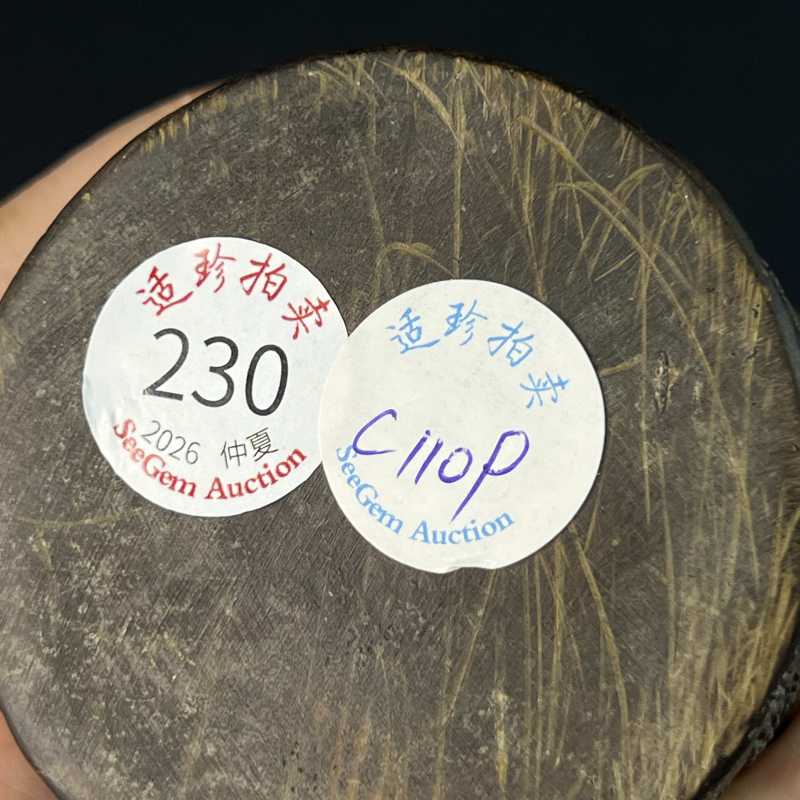 适珍拍卖
230
2026 仲夏
SeeGem Auction
适珍拍卖
C110P
SeeGem Auction